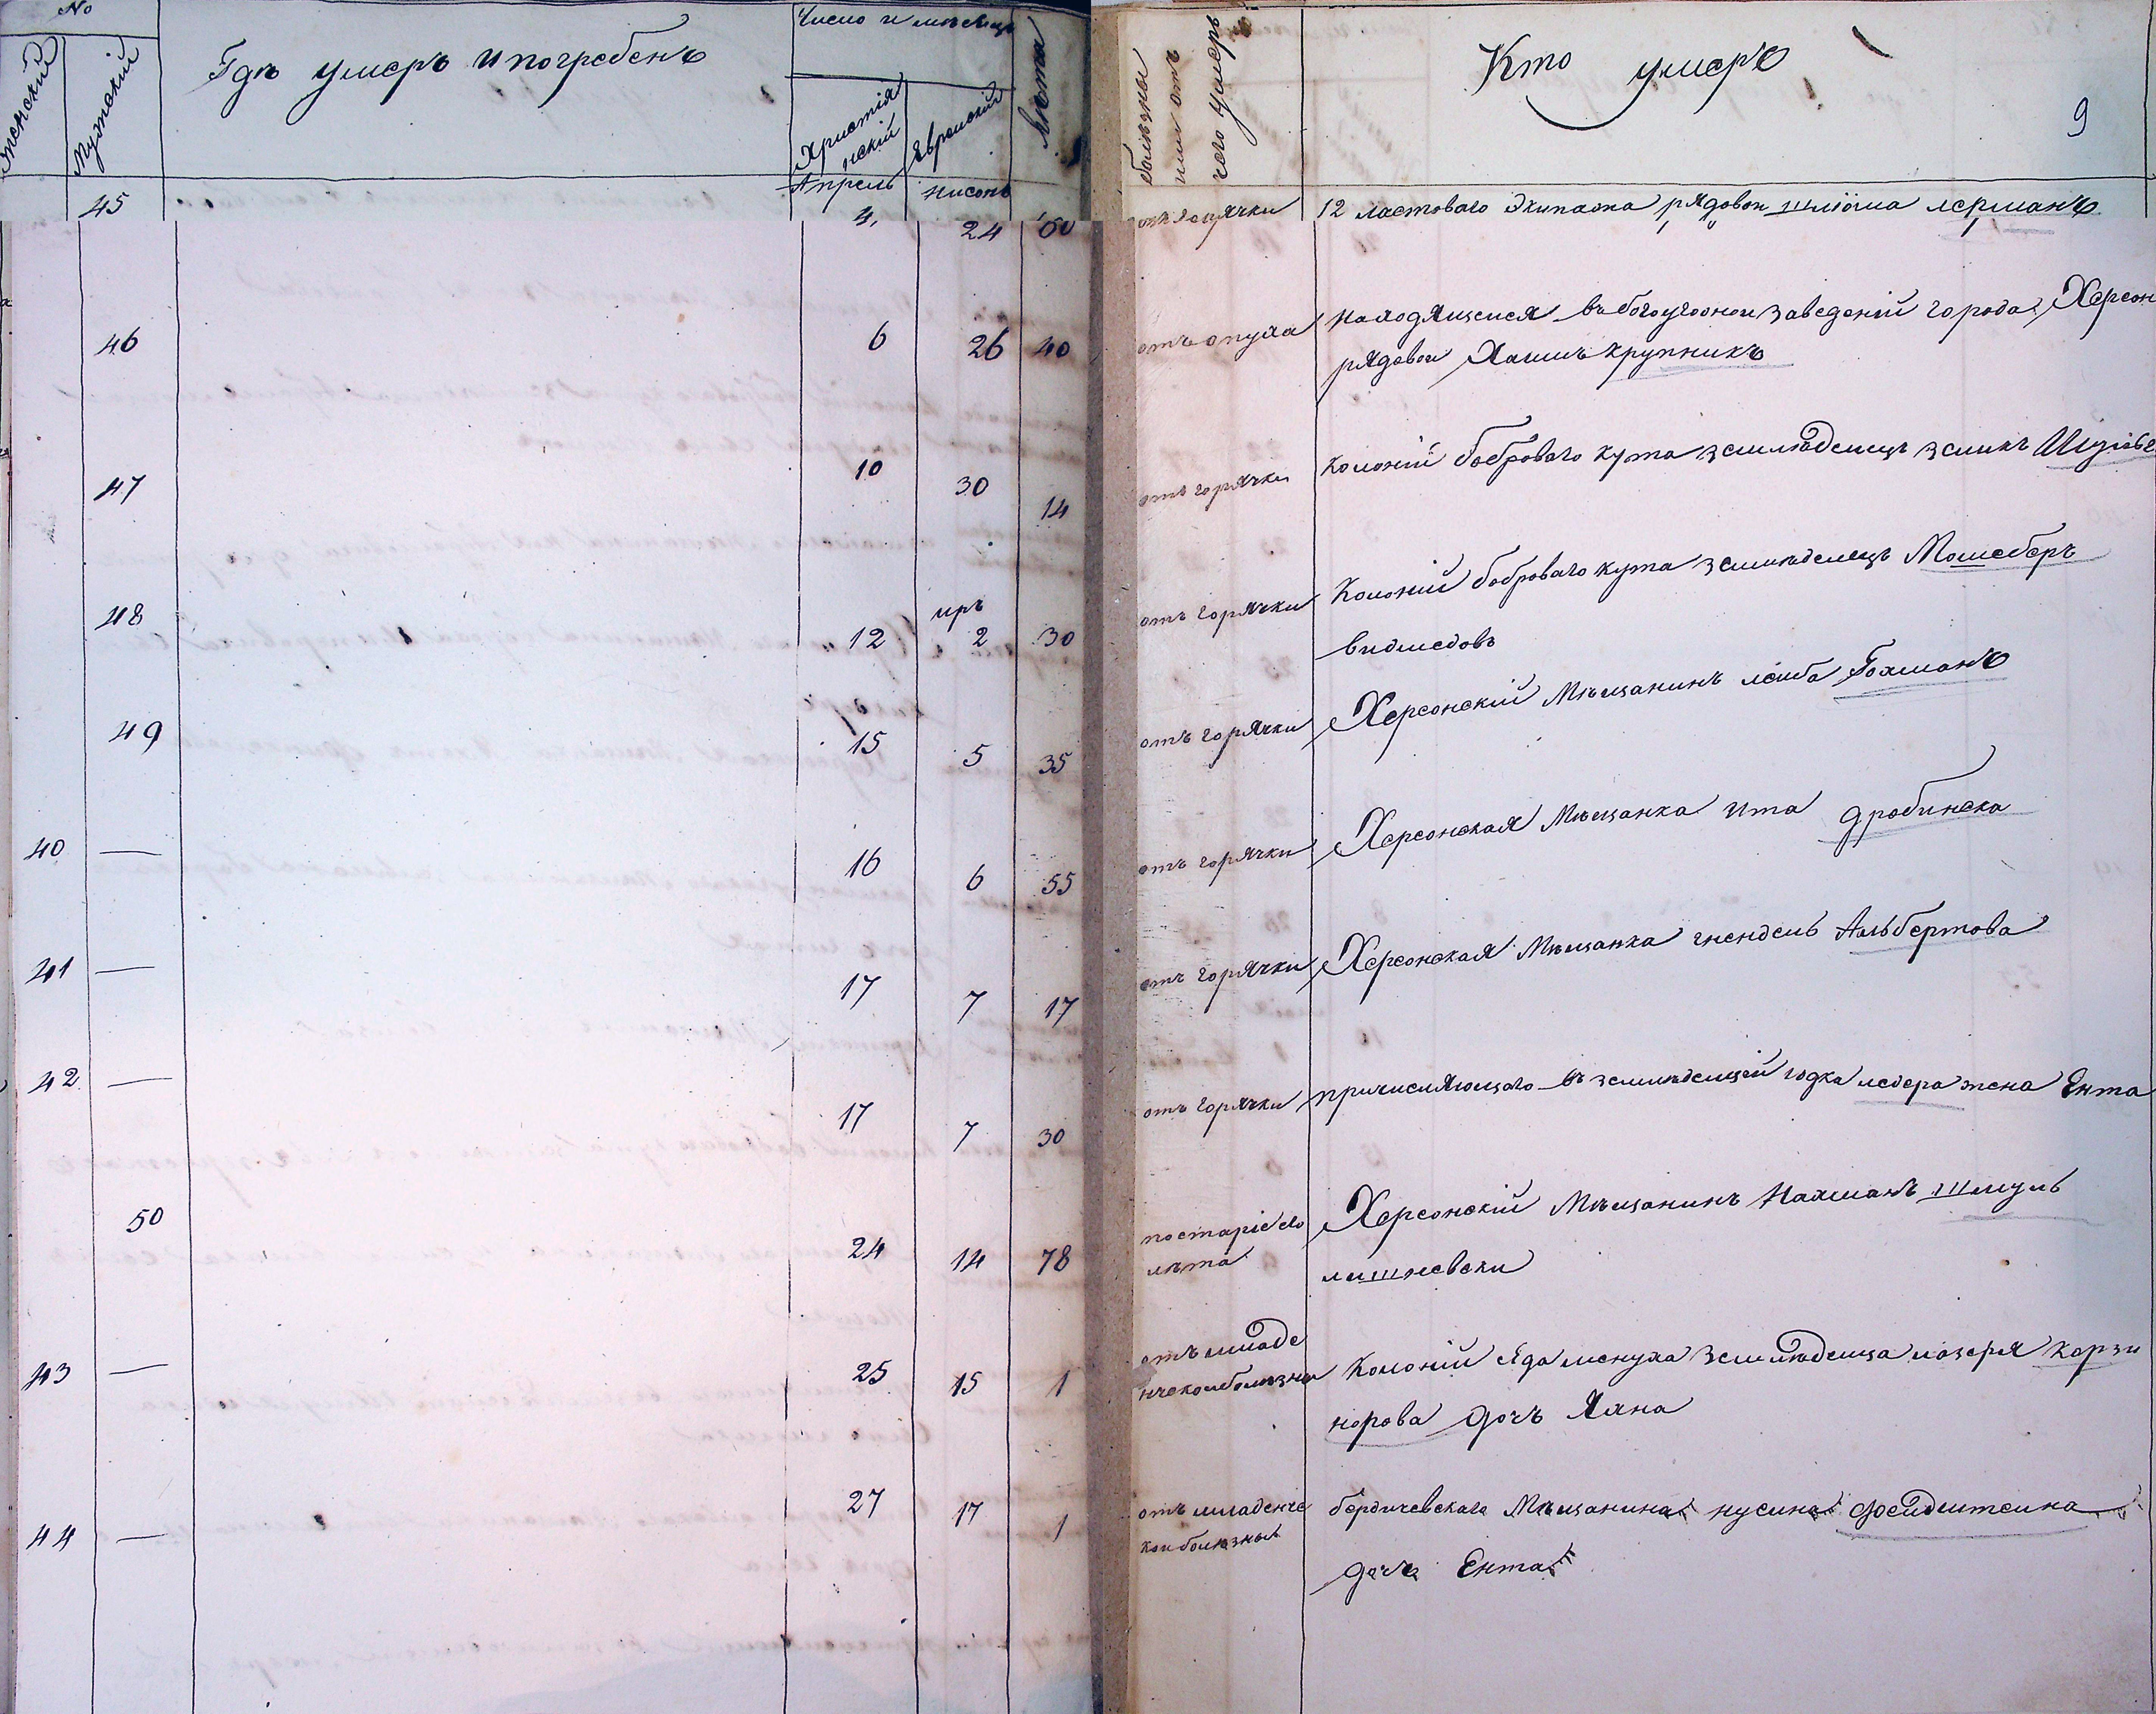 No
Женский
Мужский
Гдѣ умеръ и погребенъ
Число и мѣсяцъ
Христія
нскій
Еврейскій
Лѣта
болѣзны
или отъ
чего умеръ
Кто умеръ
9
Апрель нисонъ
45 4, 24 60 отъ горячки 12 ластоваго Экипажа рядовои шлиома лерманъ
46 6 26 40 отъ опуха находящеися въ богоугоднои заведеній города Херсон
рядовои Хаимъ крупникъ
47 10 30 14 отъ горячки Колоній боброваго кута земледелецъ зеликъ
48 иръ
12 2 30 отъ горячки Колоній боброваго кута земледелецъ Мошеберъ
видмедовъ
49 15 5 35 отъ горячки Херсонскій Мѣщанинъ леиба Гохманъ
40 — 16 6 55 отъ горячки Херсонская Мѣщанка ита дробинска
41 — 17 7 17 отъ горячки Херсонская Мѣщанка гнендель Альбертова
42 — 17 7 30 отъ горячки причисляющаго въ земледелцей юдка ледера жена Ента
50 24 14 78 по старіе его
лѣта
Херсонскій Мѣщанинъ Нахманъ шмуль
лишневски
43 — 25 15 1 отъ младе
нческои болезни
Колоній Яда менуха земледельца лазеря карзи
нерова дочъ Хана
44 — 27 17 1 отъ младенче
кои болѣзны
бердичевскаго Мѣщанина нусина феидштеина
дочь Ента